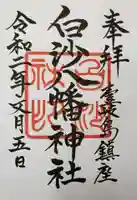 奉拝 壹岐島鎮座
白沙八幡神社
令和二年文月五日